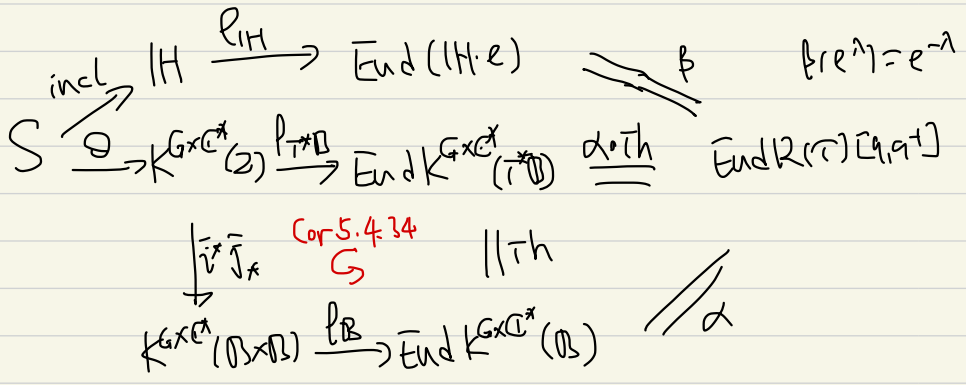 incl ℍ ρ_ℍ → End(ℍ·e) β β(e^λ)=e^{-λ}
S Θ → K^{G×ℂ*}(Z) ρ_{T*𝔹} → End K^{G×ℂ*}(T*𝔹) α∘Th End R(T)[q,q^{-1}]
↓ ī* j̄_* Cor 5.4.34 || Th
K^{G×ℂ*}(𝔹×𝔹) ρ_𝔹 → End K^{G×ℂ*}(𝔹) α